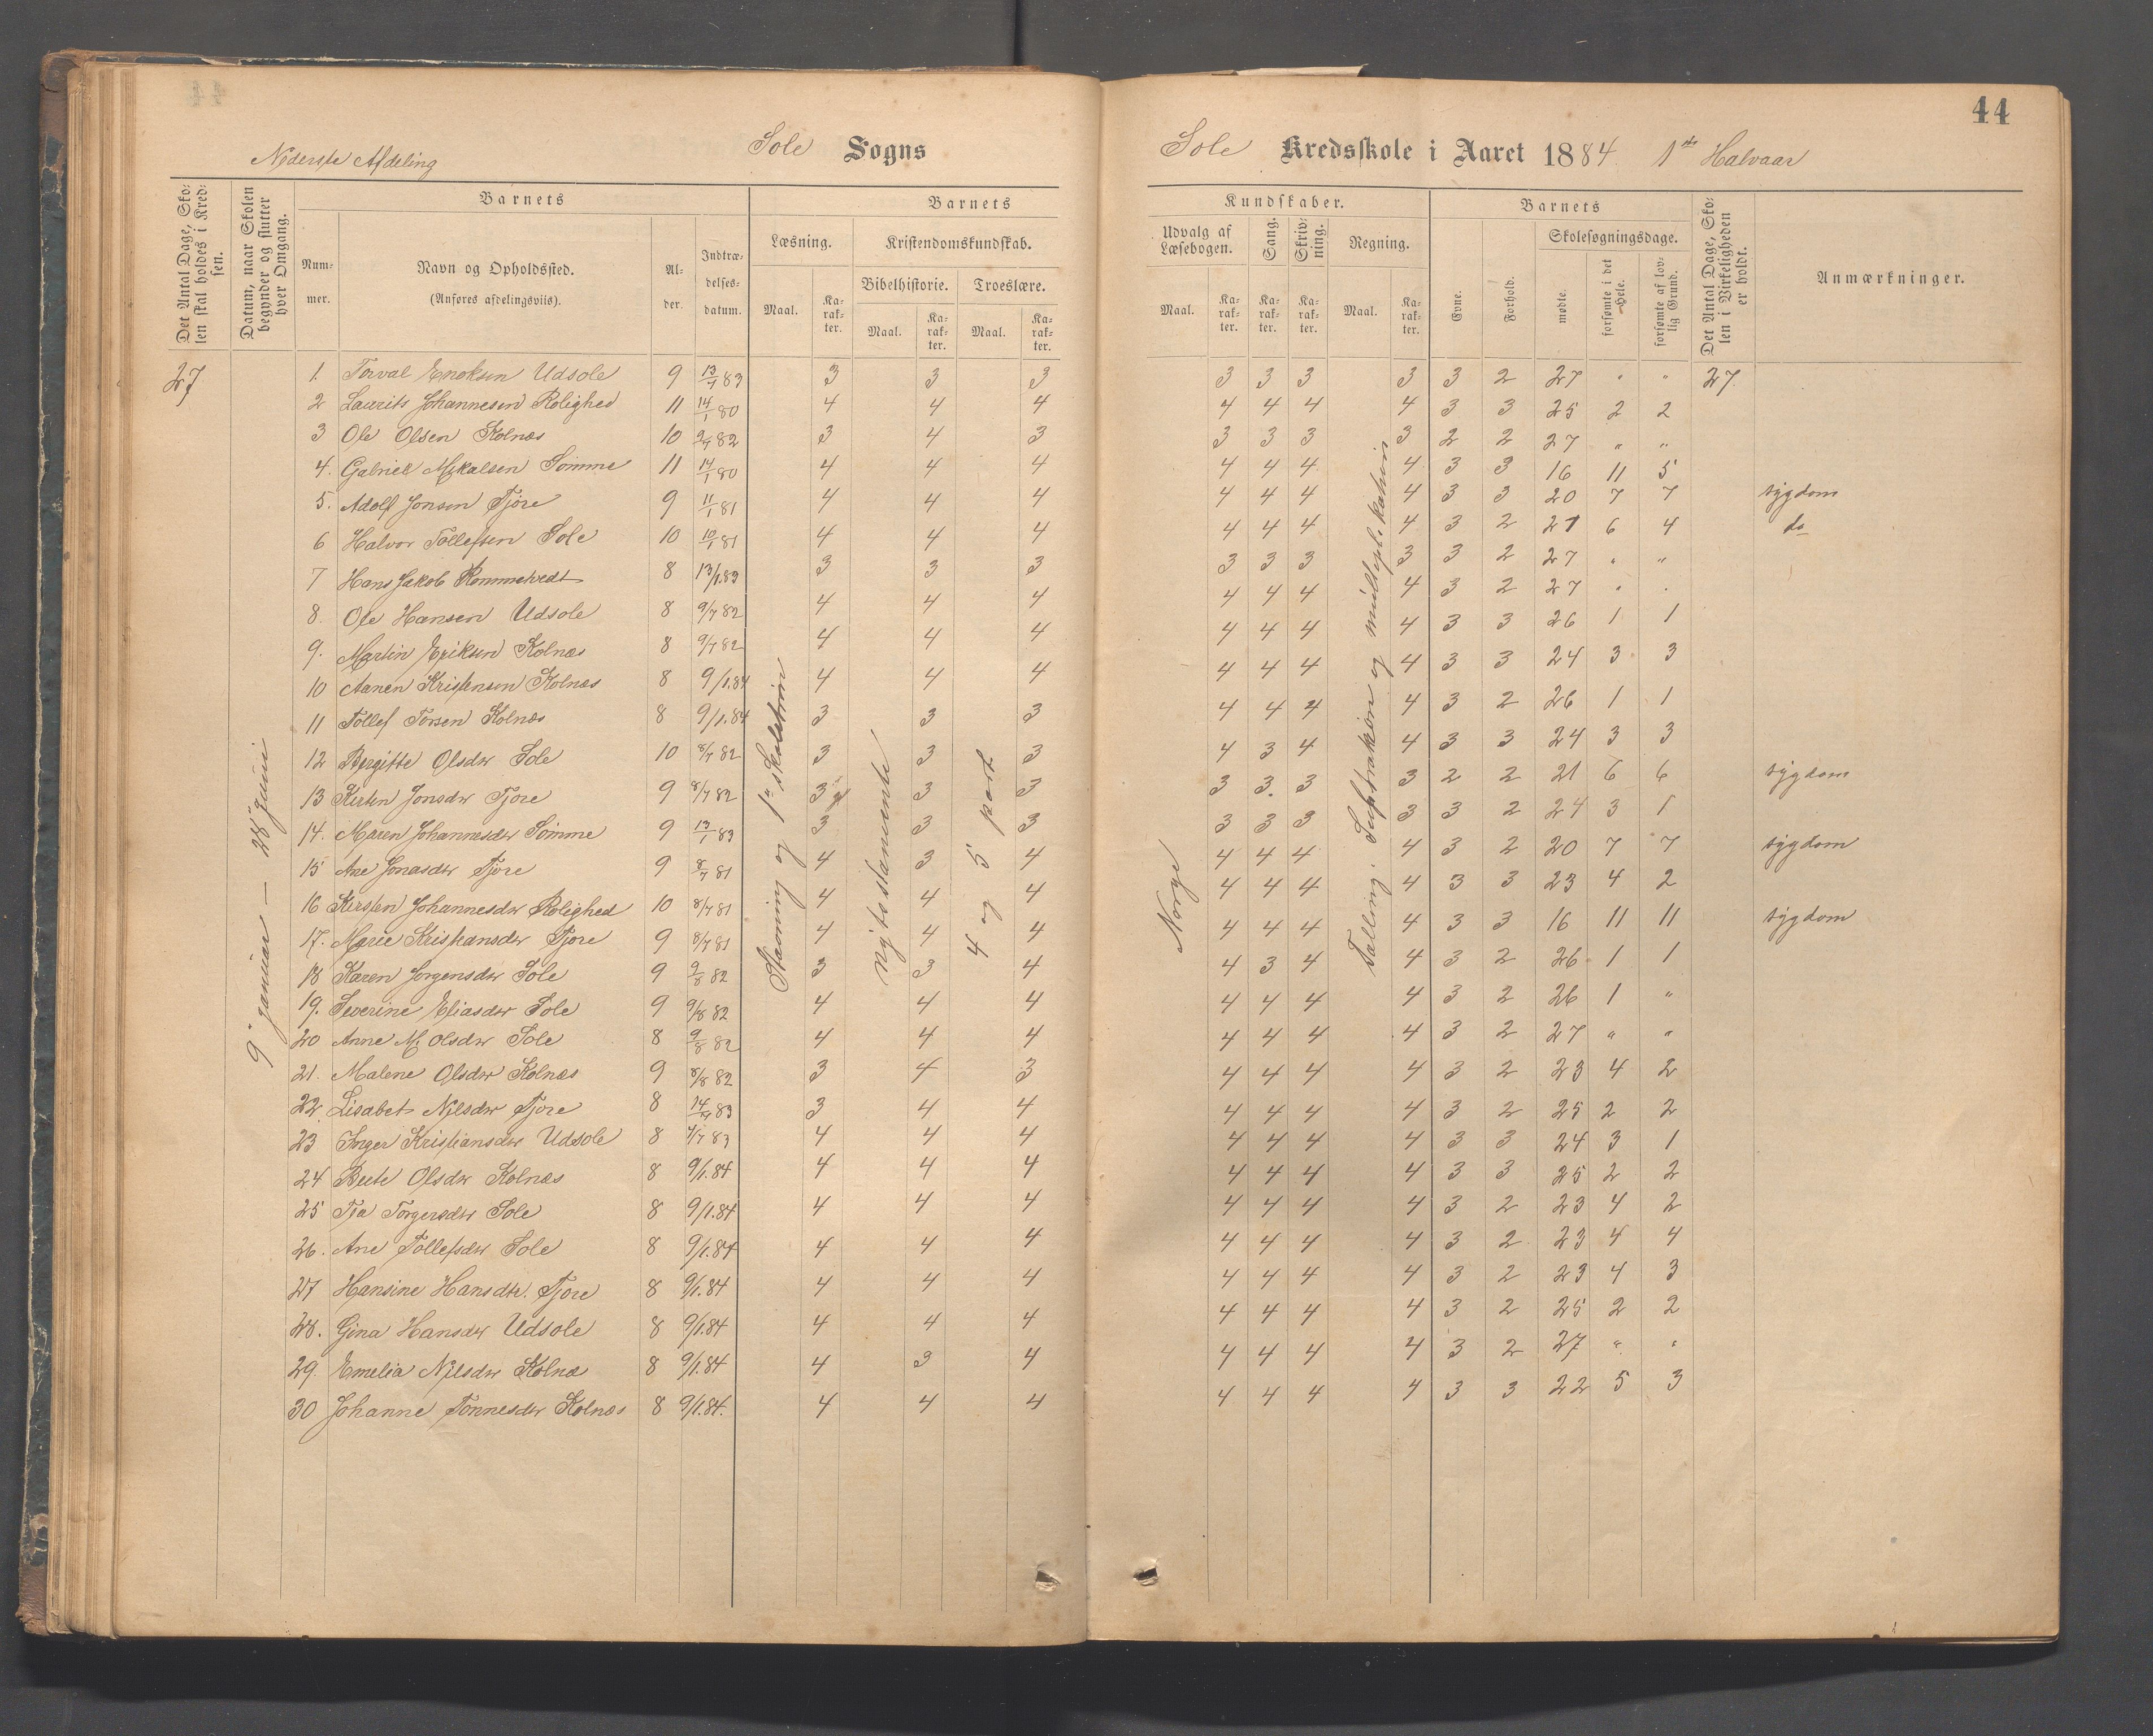 44
Nederste Afdeling
Sole Sogns
Sole Kredsskole i Aaret 1884 1ste Halvaar
Det Antal Dage, Skolen skal holdes i Kredsen.
Datum, naar Skolen begynder og slutter hver Omgang.
Barnets
Nummer.
Navn og Opholdssted.
(Anføres afdelingsviis).
Alder.
Indtrædelsesdatum.
Barnets
Læsning.
Kristendomskundskab.
Bibelhistorie.
Troeslære.
Maal.
Karakter.
Maal.
Karakter.
Maal.
Karakter.
Kundskaber.
Udvalg af Læsebogen.
Sang.
Skrivning.
Regning.
Maal.
Karakter.
Karakter.
Karakter.
Maal.
Karakter.
Barnets
Evne.
Forhold.
Skolesøgningsdage.
mødte.
forsømte i det Hele.
forsømte af lovlig Grund.
Det Antal Dage, Skolen i Virkeligheden er holdt.
Anmærkninger.
27
9 januar — 28 juni
Stavning og 1ste skoletrin
nytestamente
4 og 5 part
Norge
Tælling. Suptraktion og multeplikation
1. Torval Enoksen Udsole 9 13/7 83 3 3 3 3 3 3 3 3 2 27 " " 27
2 Laurits Johannesen Rolighed 11 14/1 80 4 4 4 4 4 4 4 3 3 25 2 2
3 Ole Olsen Kolnæs 10 9/7 82 3 4 3 3 3 3 3 2 2 27 " "
4. Gabriel Mikalsen Sømme 11 14/1 80 4 4 4 4 4 4 4 3 3 16 11 5
5. Adolf Jonsen Tjore 9 11/1 81 4 4 4 4 4 4 4 3 3 20 7 7 sygdom
6 Halvor Tollefsen Sole 10 10/1 81 4 4 4 4 4 4 4 3 2 21 6 4 do
7 Hans Jakob Rommetvedt 8 13/1.83 3 3 3 3 3 3 3 3 2 27 " "
8. Ole Hansen Udsole 8 9/7 82 4 4 4 4 4 4 4 3 2 27 " "
9. Martin Eriksen Kolnæs 8 9/7 82 4 4 4 4 4 4 4 3 3 26 1 1
10 Aanen Kristensen Kolnæs 8 9/1.84 4 4 4 4 4 4 4 3 3 24 3 3
11 Tollef Torsen Kolnæs 8 9/1.84 3 3 3 4 4 4 4 3 2 26 1 1
12 Bergitte Olsdtr Sole 10 8/7 82 3 3 3 4 3 4 4 3 3 24 3 3
13 Kirsten Jonsdtr Tjore 9 8/7 82 3 3 3 3 3. 3 3 2 2 21 6 6 sygdom
14. Maren Johannesdtr Sømme 9 13/1 83 3 3 3 3 3 3 3 3 2 24 3 1
15 Ane Jonasdtr Tjore 9 8/7 81 4 3 4 4 4 4 4 3 2 20 7 7 sygdom
16 Kirsten Johannesdtr Rolighed 10 8/7 81 4 4 4 4 4 4 4 3 3 23 4 2
17. Marie Kristiansdtr Tjore 9 8/7 81 4 4 4 4 4 4 4 3 3 16 11 11 sygdom
18 Karen Jorgensdtr Sole 9 9/8 82 3 3 4 4 3 4 4 3 2 26 1 1
19. Severine Eliasdtr Sole 9 9/8 82 4 4 4 4 4 4 4 3 2 26 1 "
20 Anne M. Olsdtr Sole 8 9/8 82 4 4 4 4 4 4 4 3 2 27 " "
21. Malene Olsdtr Kolnæs 9 8/8 82 3 4 3 4 4 4 4 3 2 23 4 2
22 Lisabet Nilsdtr Tjore 8 14/7 83 3 4 4 4 4 4 4 3 2 25 2 2
23 Inger Kristiansdtr Udsole 8 4/7 83 4 4 4 4 4 4 4 3 3 24 3 1
24 Berte Olsdtr Kolnæs 8 9/1.84 4 4 4 4 4 4 4 3 3 25 2 2
25 Tja Torgersdtr Sole 8 9/1.84 4 4 4 4 4 4 4 3 2 23 4 2
26. Ane Tollefsdtr Sole 8 9/1.84 4 4 4 4 4 4 4 3 2 23 4 4
27 Hansine Hansdtr. Tjore 8 9/1.84 4 4 4 4 4 4 4 3 2 23 4 3
28. Gina Hansdtr Udsole 8 9/1.84 4 4 4 4 4 4 4 3 2 25 2 2
29. Emelia Nilsdtr Kolnæs 8 9/1.84 4 3 4 4 4 4 4 3 2 27 " "
30 Johanne Tonnesdtr Kolnæs 8 9/1.84. 4 4 4 4 4 4 4 3 3 22 5 3